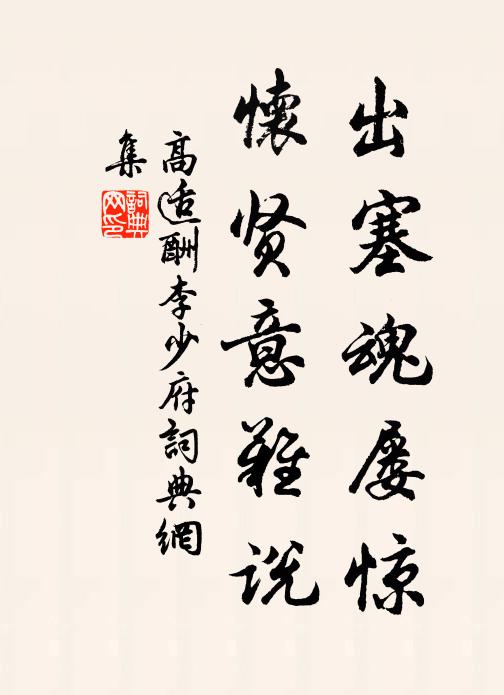 出塞魂屡惊
懷贤意難说
高适酬李少府詞典網
集
詞典
网印